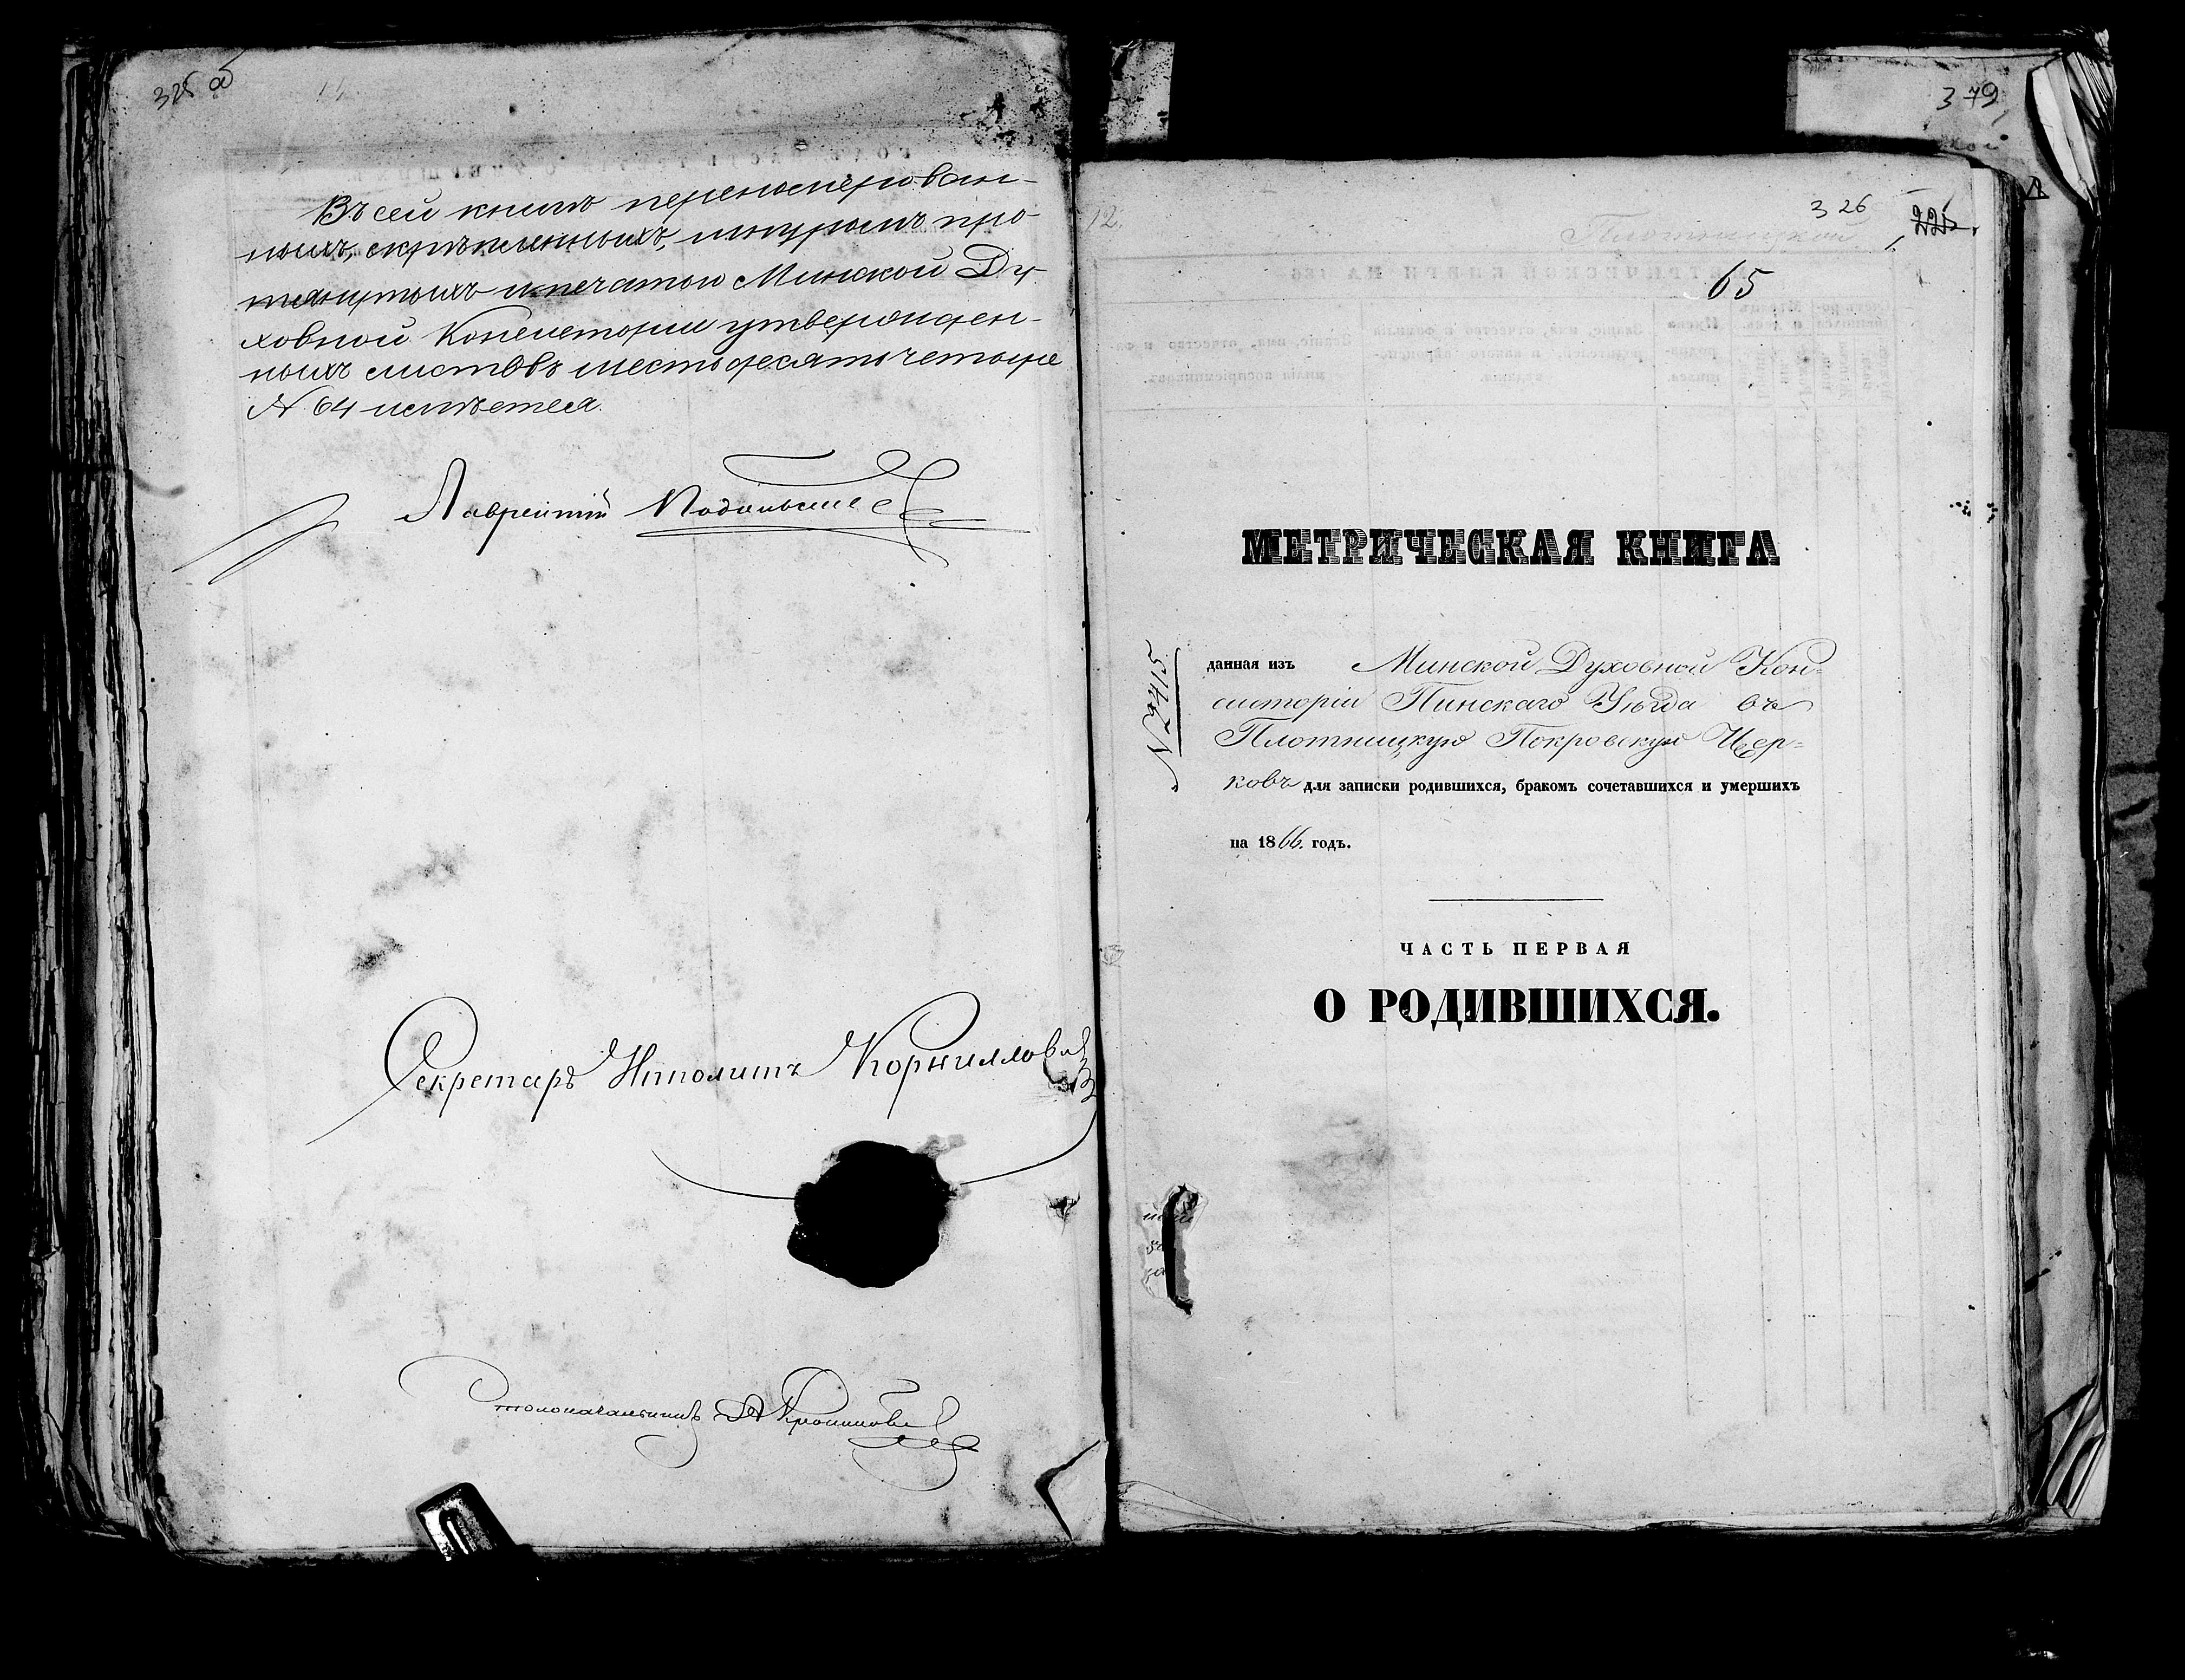 325 об
Въ сей книгѣ перенумерован-
ныхъ, скрѣпленныхъ, шнуромъ про-
тянутыхъ и печатью Минской Ду-
ховной Консисторіи утвержден-
ныхъ листовъ шестьдесятъ четыре
№ 64 имѣется.
Лаврентій
Секретарь Ипполитъ Корнилловичъ
Столоначальникъ А
379
326
Плотницкой
12.
65
МЕТРИЧЕСКАЯ КНИГА
№ 7415
данная изъ Минской Духовной Кон=
систоріи Пинскаго Уѣзда въ
Плотницкую Покровскую Цер=
ковь для записки родившихся, бракомъ сочетавшихся и умершихъ
на 1866. годъ.
ЧАСТЬ ПЕРВАЯ
О РОДИВШИХСЯ.